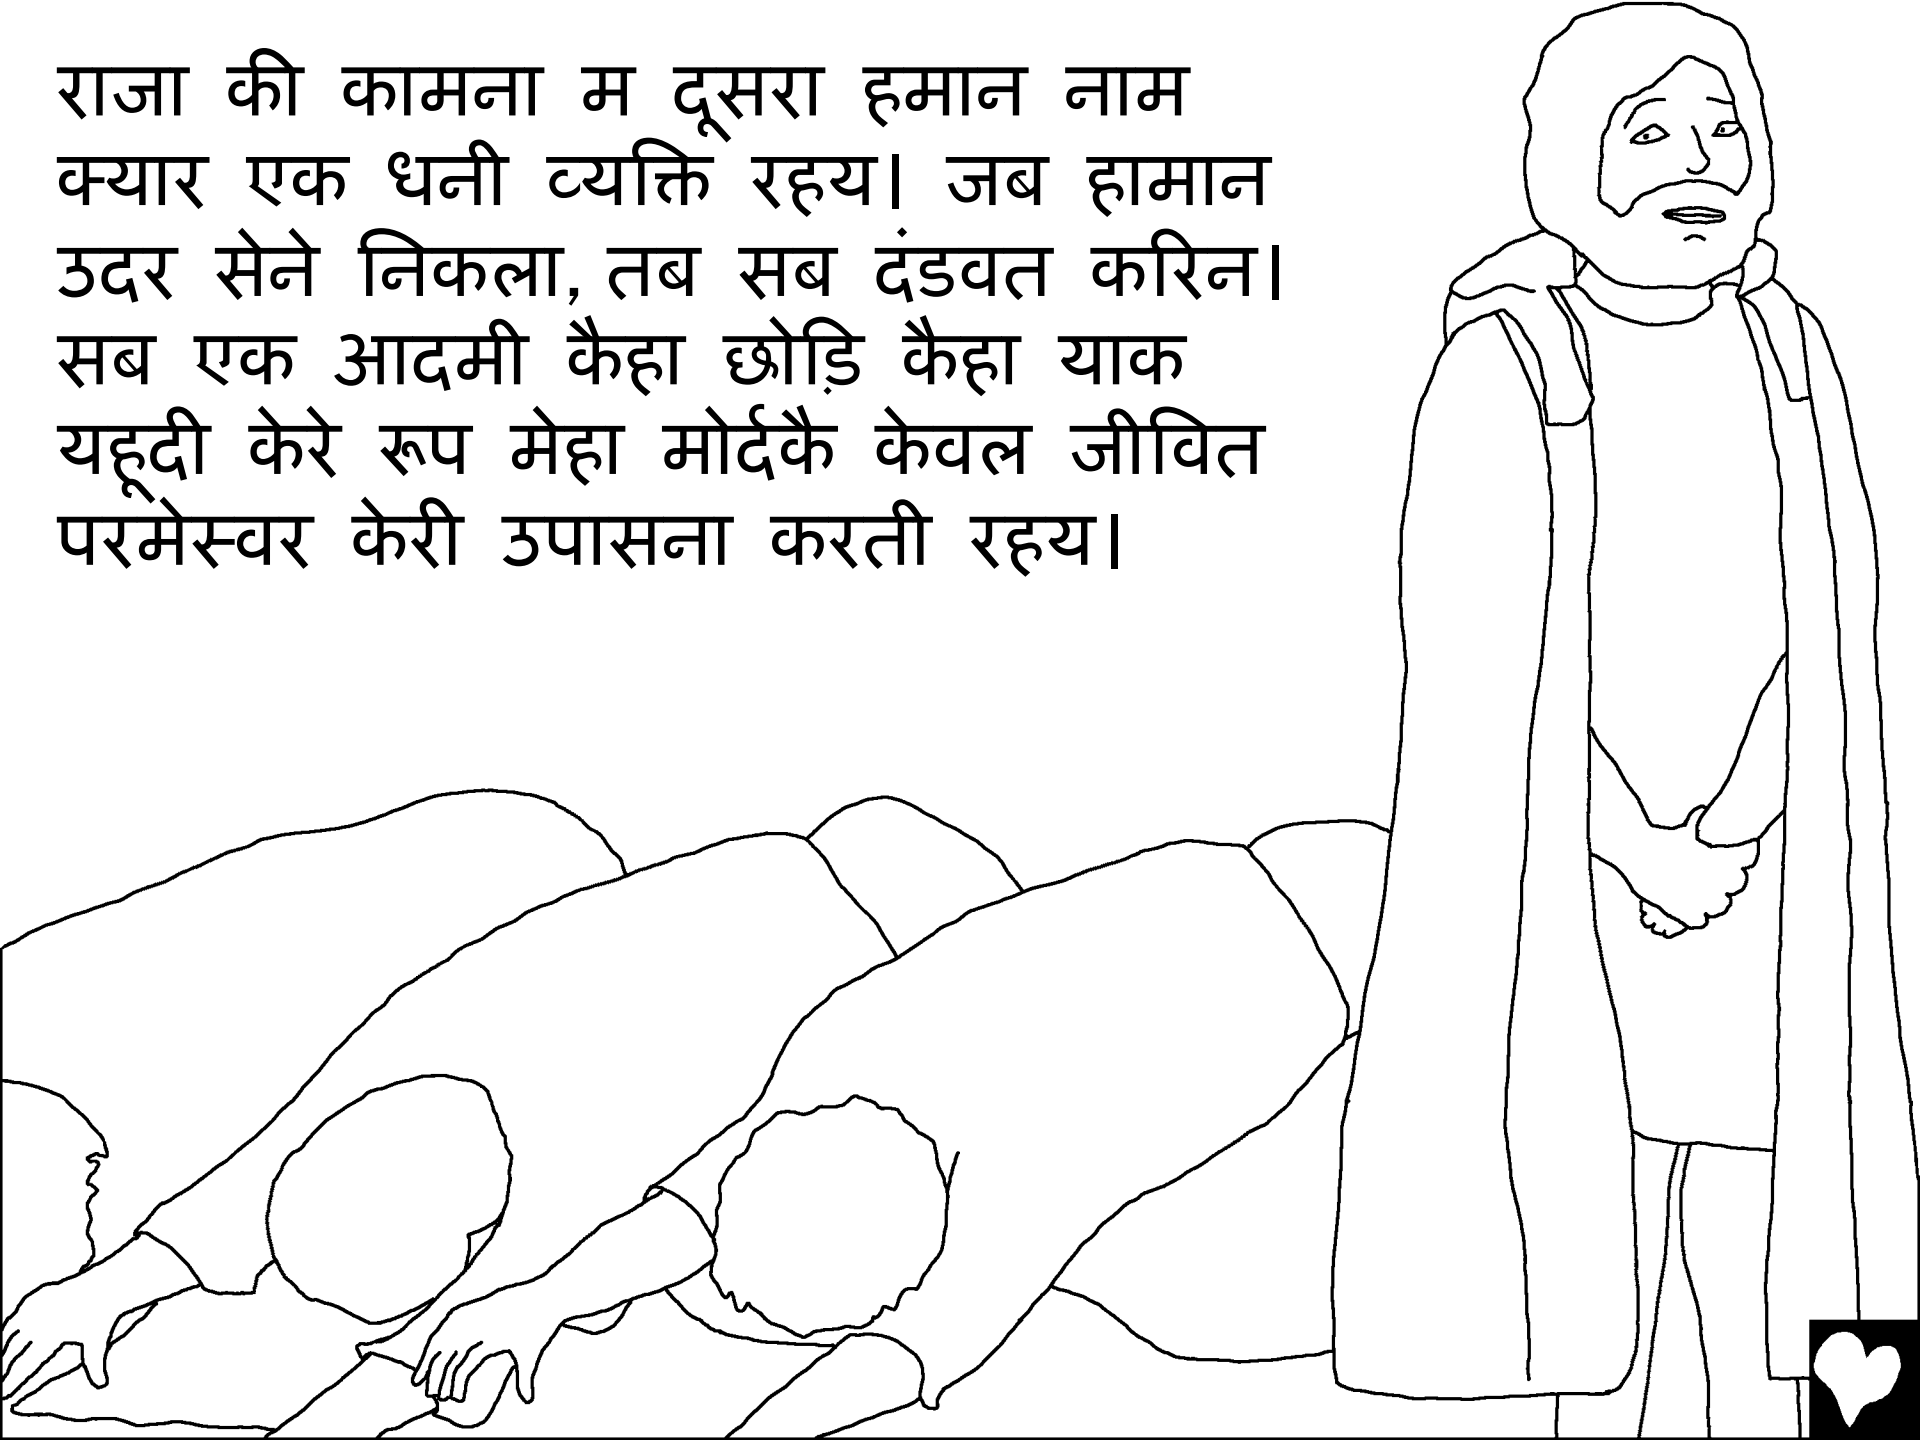 राजा की कामना म दूसरा हमान नाम
क्यार एक धनी व्यक्ति रहय। जब हामान
उदर सेने निकला, तब सब दंडवत करिन।
सब एक आदमी कैहा छोड़ि कैहा याक
यहूदी केरे रूप मेहा मोर्दकै केवल जीवित
परमेस्वर केरी उपासना करती रहय।